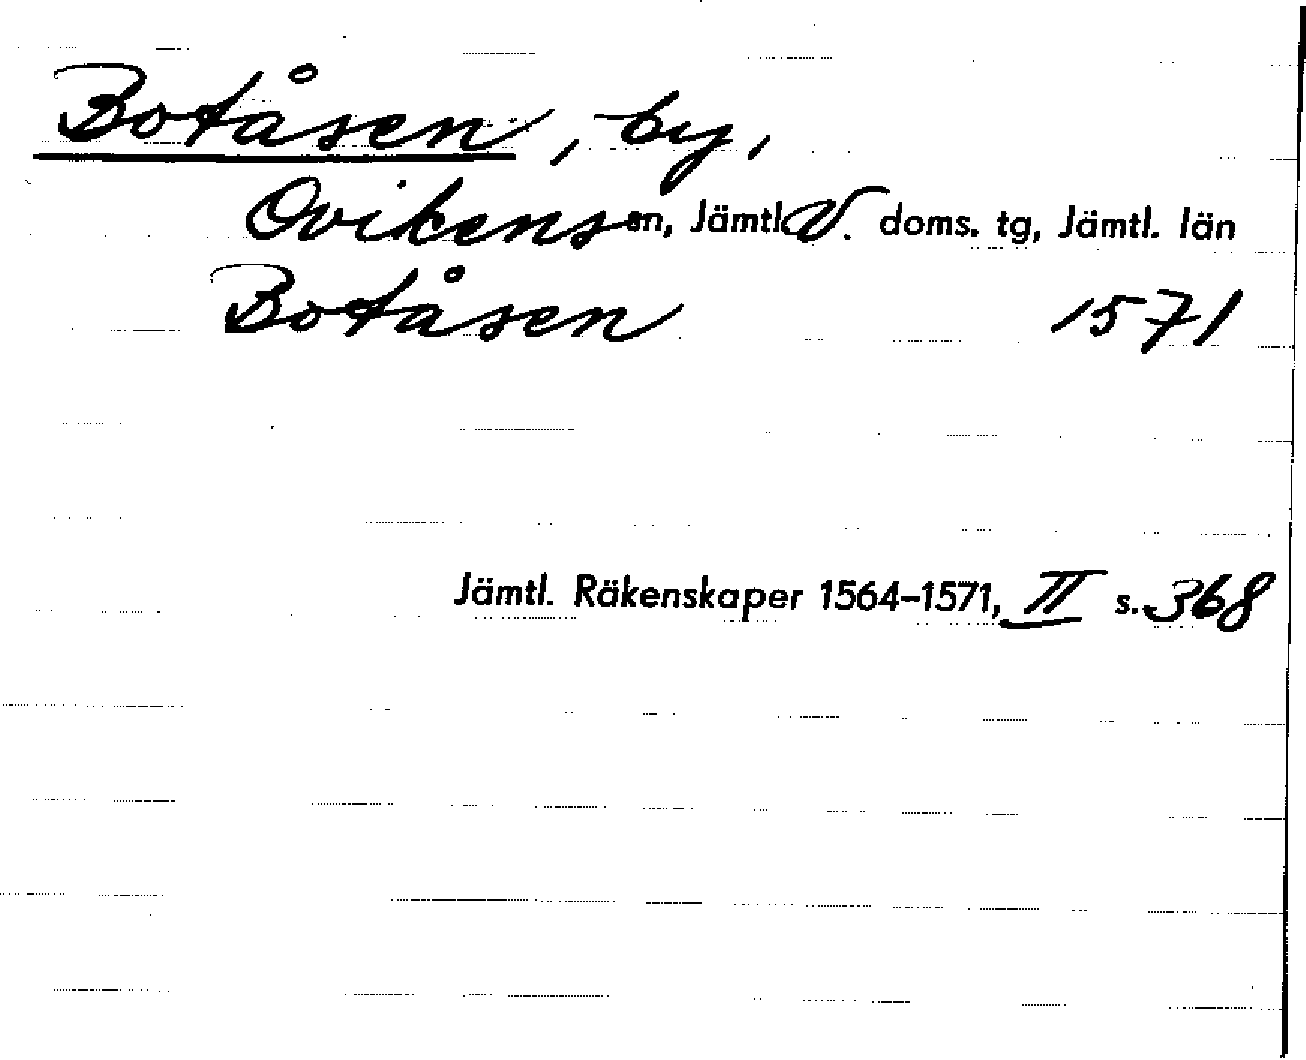 Botåsen, by,
Ovikens sn, Jämtl. V. doms. tg, Jämtl. län
Botåsen 1571
Jämtl. Räkenskaper 1564-1571, II s. 368